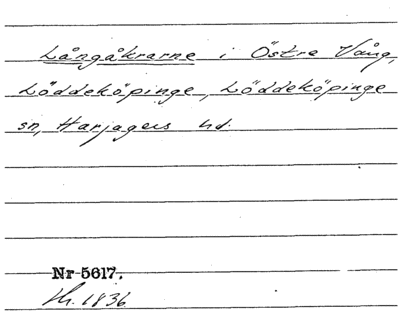 Långåkrarne i Östre Vång,
Löddeköpinge, Löddeköpinge
sn, Harjagers hd.
Nr 5617.
1836